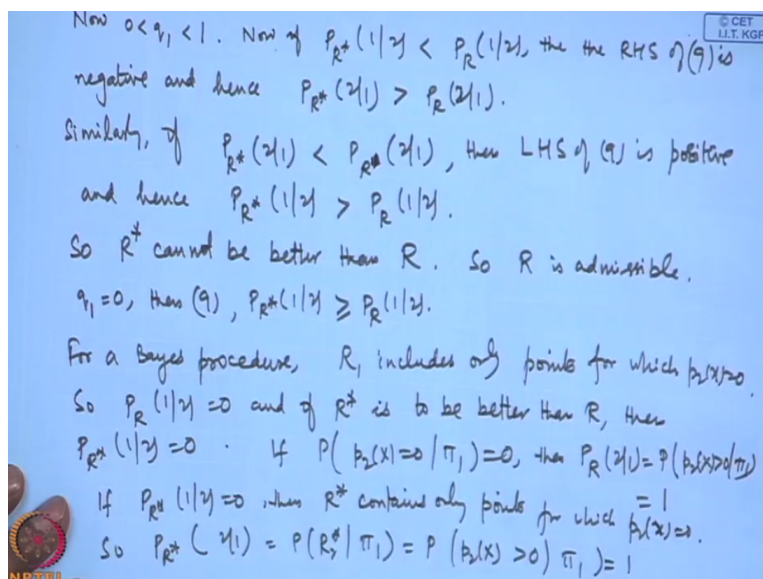 © CET
I.I.T. KGP
Now 0<q₁<1. Now if P_R*(1/2) < P_R(1/2), the the RHS of (9) is
negative and hence P_R*(2/1) > P_R(2/1).
Similarly, if P_R*(2/1) < P_R(2/1), then LHS of (9) is positive
and hence P_R*(1/2) > P_R(1/2).
So R* cannot be better than R. So R is admissible.
q₁=0, then (9), P_R*(1/2) ≥ P_R(1/2).
For a Bayes procedure, R₁ includes only points for which p₂(x)=0.
So P_R(1/2)=0 and if R* is to be better than R, then
P_R*(1/2)=0. If P(p₂(x)=0/π₁)=0, then P_R(2/1)=P(p₂(x)>0/π₁)
=1
If P_R*(1/2)=0, then R* contains only points for which p₂(x)=0.
So P_R*(2/1) = P(R₂*|π₁) = P(p₂(x)>0)π₁)=1
NPTEL